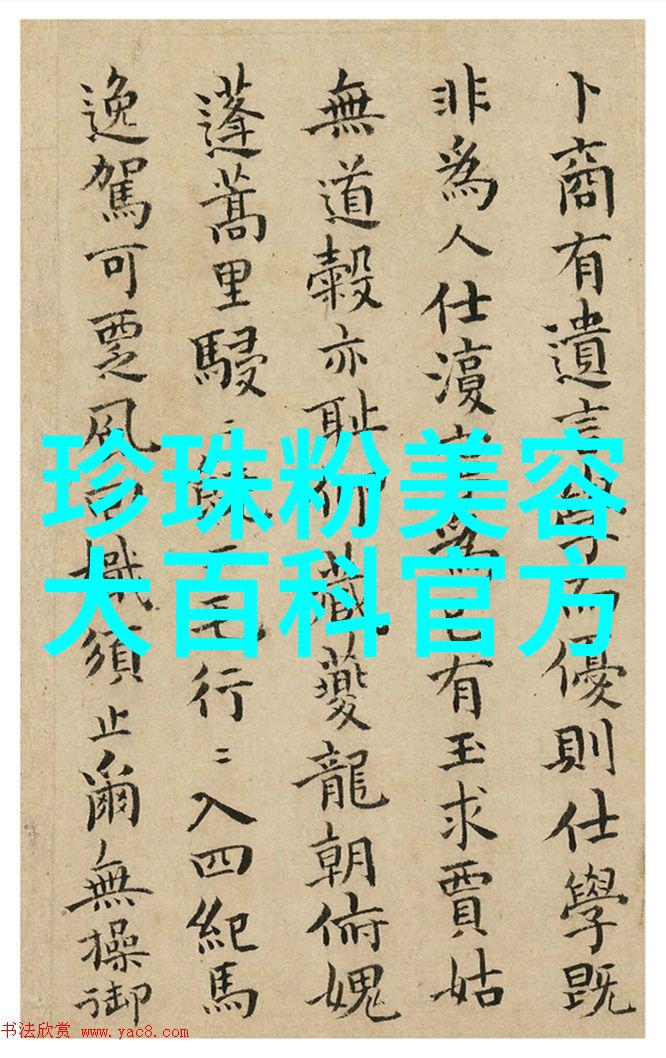 卜商有遺言學而優則仕學既
非爲人仕爲己有玉求賈姑
無道穀亦耻夔龍朝俯愧
蓬蒿里駸〻二毛行〻入四紀馬
逸駕可覂風檝須止爾無操御
珍珠粉美容
大百科官方
书法欣赏 www.yac8.com